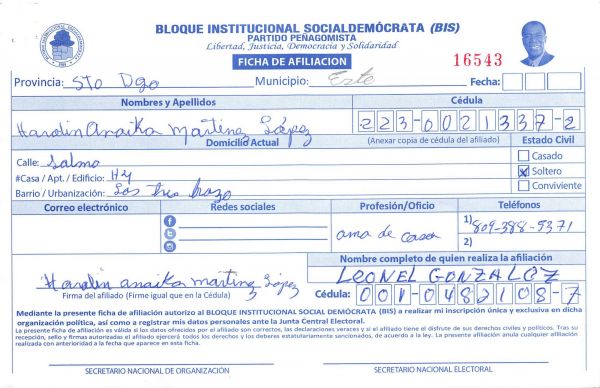 BLOQUE INSTITUCIONAL SOCIALDEMÓCRATA (BIS)
PARTIDO PEÑAGOMISTA
Libertad, Justicia, Democracia y Solidaridad
FICHA DE AFILIACION
16543
Provincia: Sto Dgo Municipio: Este Fecha:
Nombres y Apellidos Cédula
Harolin Anaika Martinez López 223-0021337-2
Domicilio Actual (Anexar copia de cédula del afiliado) Estado Civil
Calle: Salmo Casado
#Casa / Apt. / Edificio: H4 x Soltero
Barrio / Urbanización: Los tres brazo Conviviente
Correo electrónico Redes sociales Profesión/Oficio Teléfonos
ama de casa 1) 809-388-9371
2)
Nombre completo de quien realiza la afiliación
Harolin anaika martinez López LEONEL GONZALEZ
Firma del afiliado (Firme igual que en la Cédula) Cédula: 001-0482108-7
Mediante la presente ficha de afiliación autorizo al BLOQUE INSTITUCIONAL SOCIAL DEMÓCRATA (BIS) a realizar mi inscripción única y exclusiva en dicha
organización política, así como a registrar mis datos personales ante la Junta Central Electoral.
La presente ficha de afiliación es válida si los datos ofrecidos por el afiliado son correctos, las declaraciones veraces y si el afiliado tiene el disfrute de sus derechos civiles y políticos. Tras su
recepción, sello y firmas autorizadas el afiliado ejercerá todos los derechos y los deberes estatutariamente sancionados, de acuerdo a la ley. La presente afiliación anula cualquier afiliación
realizada con anterioridad a la fecha que aparece en esta ficha.
SECRETARIO NACIONAL DE ORGANIZACIÓN SECRETARIO NACIONAL ELECTORAL